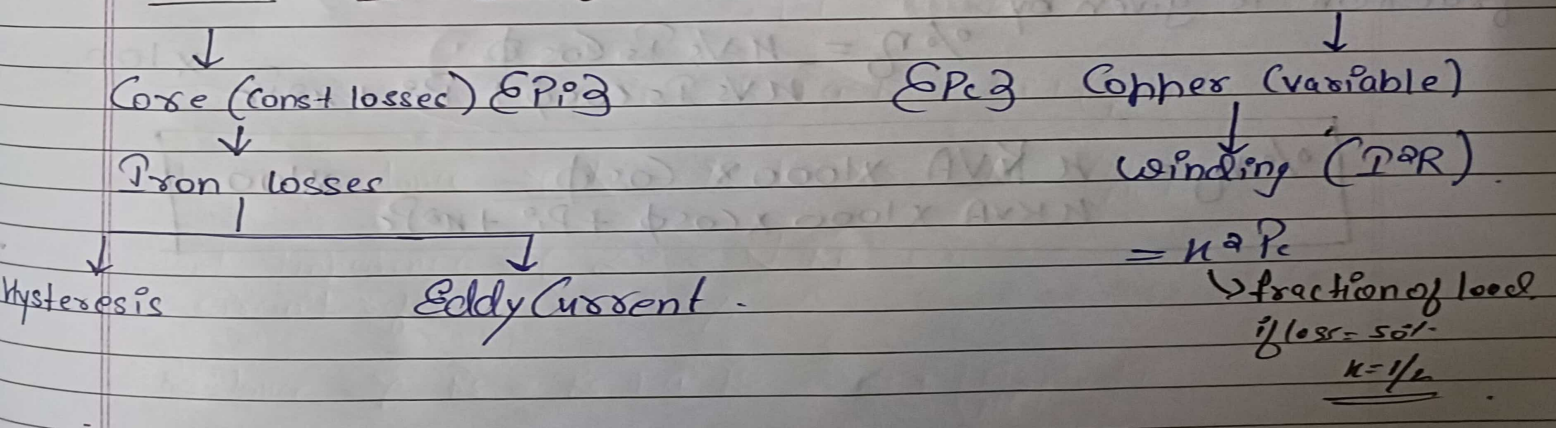 Core (Const losses) {Pi} {Pc} Copper (variable)
Iron losses winding (I²R)
= x² Pc
Hysteresis Eddy Current. fraction of load
if loss = 50%
x = 1/2